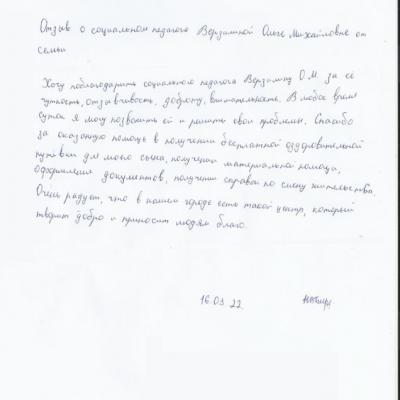 Отзыв о социальном педагоге Верзилиной Ольге Михайловне от
семьи
Хочу поблагодарить социального педагога Верзилину О.М. за её
чуткость, отзывчивость, доброту, внимательность. В любое время
суток я могу позвонить ей и решить свои проблемы. Спасибо
за оказанную помощь в получении бесплатной оздоровительной
путёвки для моего сына, получении материальной помощи,
оформлении документов, получении справки по смену жительства.
Очень радует, что в нашем городе есть такой центр, который
творит добро и приносит людям благо.
16.03.22